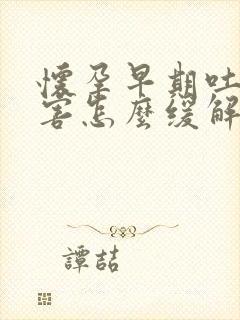 懷孕早期吐
害怎麼緩解
譚喆